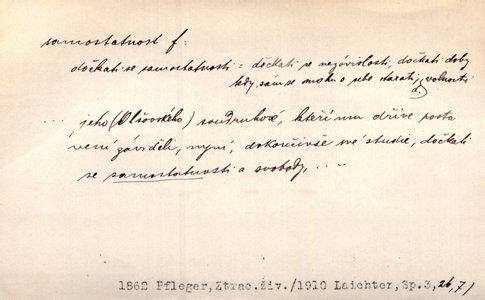 samostatnost f:
dočkati se samostatnosti = dočkati se nezávislosti, dočkati doby
kdy sám se mohu o sebe starati, volnosti
... jeho (Olšovského) soudruhové, kteří mu dříve posta
vení záviděli, nyní, dokončivše své studie, dočkali
se samostatnosti a svobody, ...
1862 Pfleger, Ztrac.živ./1910 Laichter, Sp.3, 26, 71